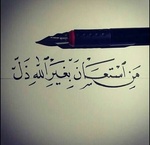 مَنِ اسْتَعَانَ بِغَيْرِ اللهِ ذَلَّ